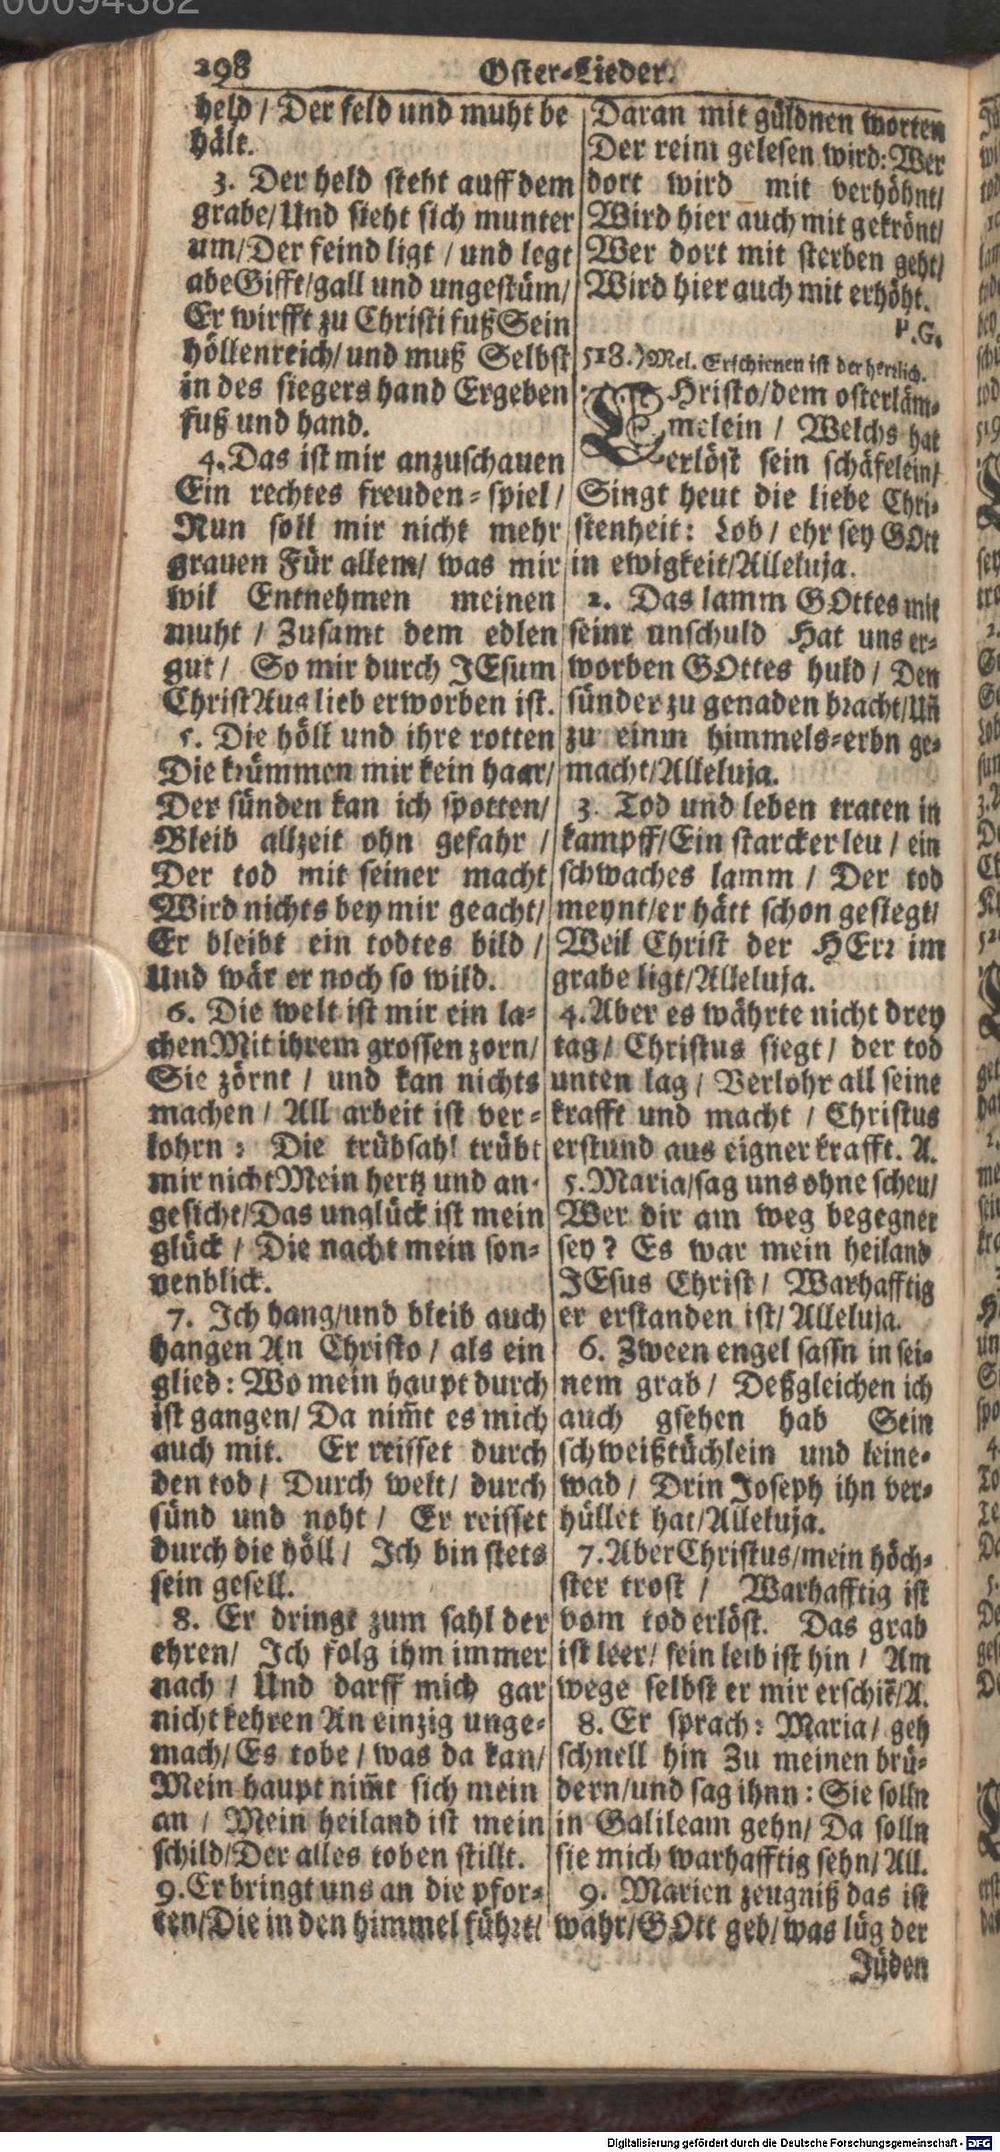 00094382
298 Oster-Lieder.
held / Der feld und muht be
hält.
3. Der held steht auff dem
grabe/Und sieht sich munter
um/Der feind ligt / und legt
abe Gifft/gall und ungestüm/
Er wirfft zu Christi fuß Sein
höllenreich/ und muß Selbst
in des siegers hand Ergeben
fuß und hand.
4. Das ist mir anzuschauen
Ein rechtes freuden-spiel /
Nun soll mir nicht mehr
grauen Für allem/ was mir
wil Entnehmen meinen
muht / Zusamt dem edlen
gut / So mir durch JEsum
Christ Aus lieb erworben ist.
5. Die höll und ihre rotten
Die krümmen mir kein haar/
Der sünden kan ich spotten/
Bleib allzeit ohn gefahr /
Der tod mit seiner macht
Wird nichts bey mir geacht/
Er bleibt ein todtes bild /
Und wär er noch so wild.
6. Die welt ist mir ein la-
chen Mit ihrem grossen zorn/
Sie zörnt / und kan nichts
machen / All arbeit ist ver-
lohrn: Die trübsahl trübt
mir nicht Mein hertz und an-
gesicht/Das unglück ist mein
glück / Die nacht mein son-
nenblick.
7. Ich hang/und bleib auch
hangen An Christo / als ein
glied: Wo mein haupt durch
ist gangen/ Da nim̃t es mich
auch mit. Er reisset durch
den tod / Durch welt/ durch
sünd und noht / Er reisset
durch die höll / Ich bin stets
sein gesell.
8. Er dringt zum sahl der
ehren/ Ich folg ihm immer
nach / Und darff mich gar
nicht kehren An einzig unge-
mach/ Es tobe / was da kan/
Mein haupt nim̃t sich mein
an / Mein heiland ist mein
schild/Der alles toben stillt.
9. Er bringt uns an die pfor-
ten/Die in den himmel führt/
Daran mit güldnen worten
Der reim gelesen wird: Wer
dort wird mit verhöhnt/
Wird hier auch mit gekrönt/
Wer dort mit sterben geht/
Wird hier auch mit erhöht.
P.G.
518.) Mel. Erschienen ist der herrlich.
CHristo/dem osterläm-
melein / Welchs hat
erlöst sein schäfelein/
Singt heut die liebe Chri-
stenheit: Lob / ehr sey GOtt
in ewigkeit/Alleluja.
2. Das lamm GOttes mit
seinr unschuld Hat uns er-
worben GOttes huld / Den
sünder zu genaden bracht/Uñ
zu einm himmels-erbn ge-
macht/Alleluja.
3. Tod und leben traten in
kampff/Ein starcker leu / ein
schwaches lamm / Der tod
meynt/er hätt schon gesiegt/
Weil Christ der HErr im
grabe ligt/Alleluja.
4. Aber es währte nicht drey
tag / Christus siegt / der tod
unten lag / Verlohr all seine
krafft und macht / Christus
erstund aus eigner krafft. A.
5. Maria/sag uns ohne scheu/
Wer dir am weg begegnet
sey? Es war mein heiland
JEsus Christ / Warhafftig
er erstanden ist/ Alleluja.
6. Zween engel sassn in sei-
nem grab / Deßgleichen ich
auch gsehen hab Sein
schweißtüchlein und leine-
wad / Drin Joseph ihn ver-
hüllet hat/Alleluja.
7. Aber Christus/mein höch-
ster trost / Warhafftig ist
vom tod erlöst. Das grab
ist leer/ sein leib ist hin / Am
wege selbst er mir erschiẽ/A.
8. Er sprach: Maria/ geh
schnell hin Zu meinen brü-
dern/und sag ihnn: Sie solln
in Galileam gehn/ Da solln
sie mich warhafftig sehn/ All.
9. Marien zeugniß das ist
wahr/GOtt geb/was lüg der
Jüden
Digitalisierung gefördert durch die Deutsche Forschungsgemeinschaft - DFG